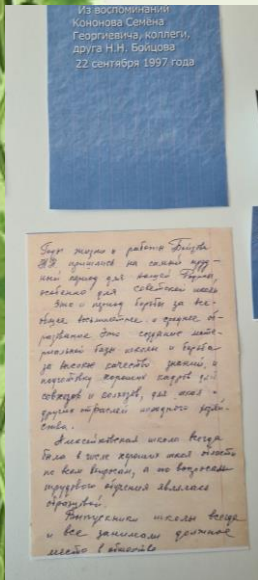 Из воспоминаний
Кононова Семёна
Георгиевича, коллеги,
друга Н.Н. Бойцова
22 сентября 1997 года
Годы жизни и работы Бойцова
НН пришлись на самый труд-
ный период для нашей Родины,
особенно для советской школы
Это и период борьбы за все-
общее восьмилетнее и среднее об-
разование Это создание мате-
риальной базы школы и борьба
за высокое качество знаний, и
подготовку хороших кадров для
совхозов и колхозов, для школ и
других отраслей народного хозяй-
ства.
школа всегда
была в числе хороших школ области
по всем вопросам, а по вопросам
трудового обучения являлась
образцовой.
Выпускники школы всегда
и все занимали должное
место в обществе